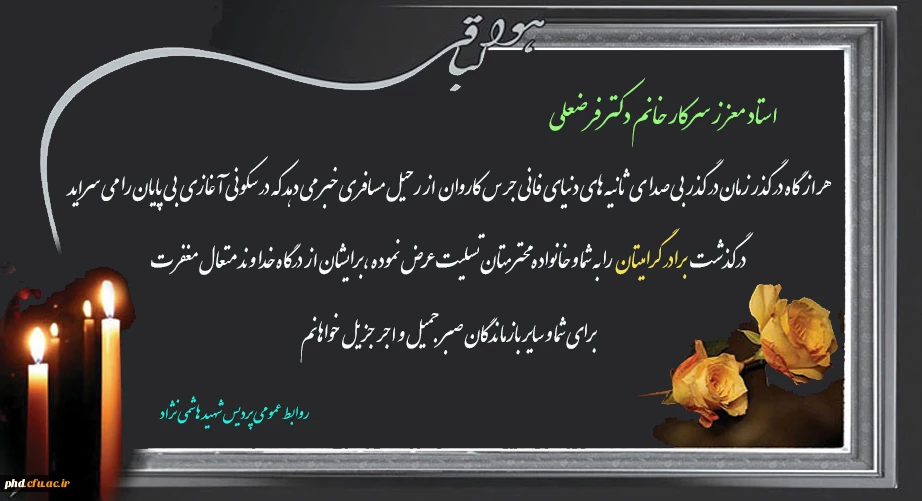 هوالباقی
استاد معزز سرکار خانم دکتر فرضعلی
هر از گاه در گذر زمان در گذر بی صدای ثانیه های دنیای فانی جرس کاروان از رحیل مسافری خبر می دهد که در سکونی آغازی بی پایان را می سراید
درگذشت برادر گرامیتان را به شما و خانواده محترمتان تسلیت عرض نموده ، برایشان از درگاه خداوند متعال مغفرت
برای شما و سایر بازماندگان صبر جمیل و اجر جزیل خواهانم
روابط عمومی پردیس شهید هاشمی نژاد
phd.cfu.ac.ir